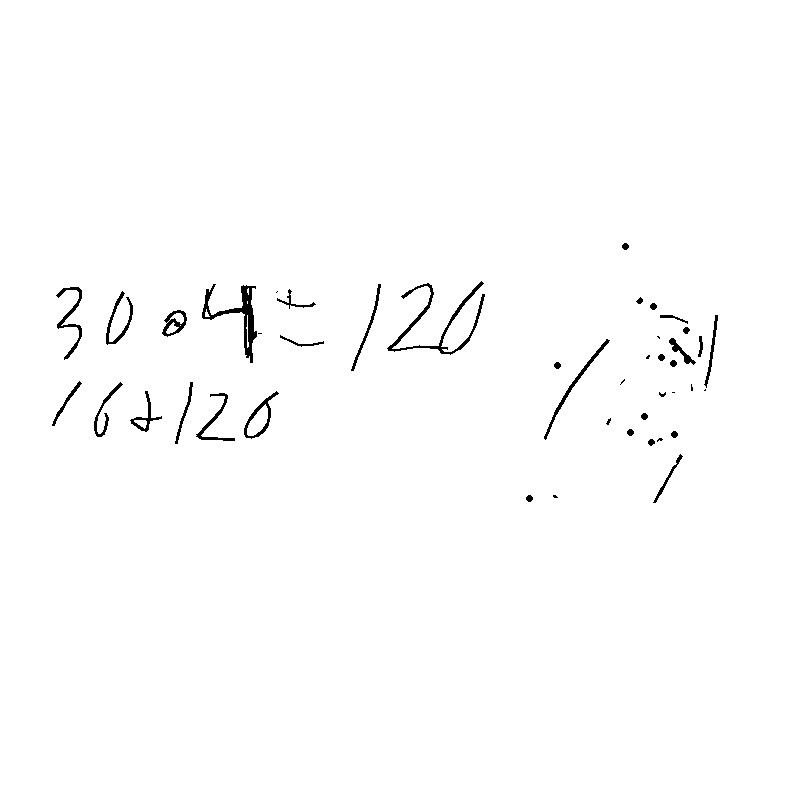 30•4=120
16+120